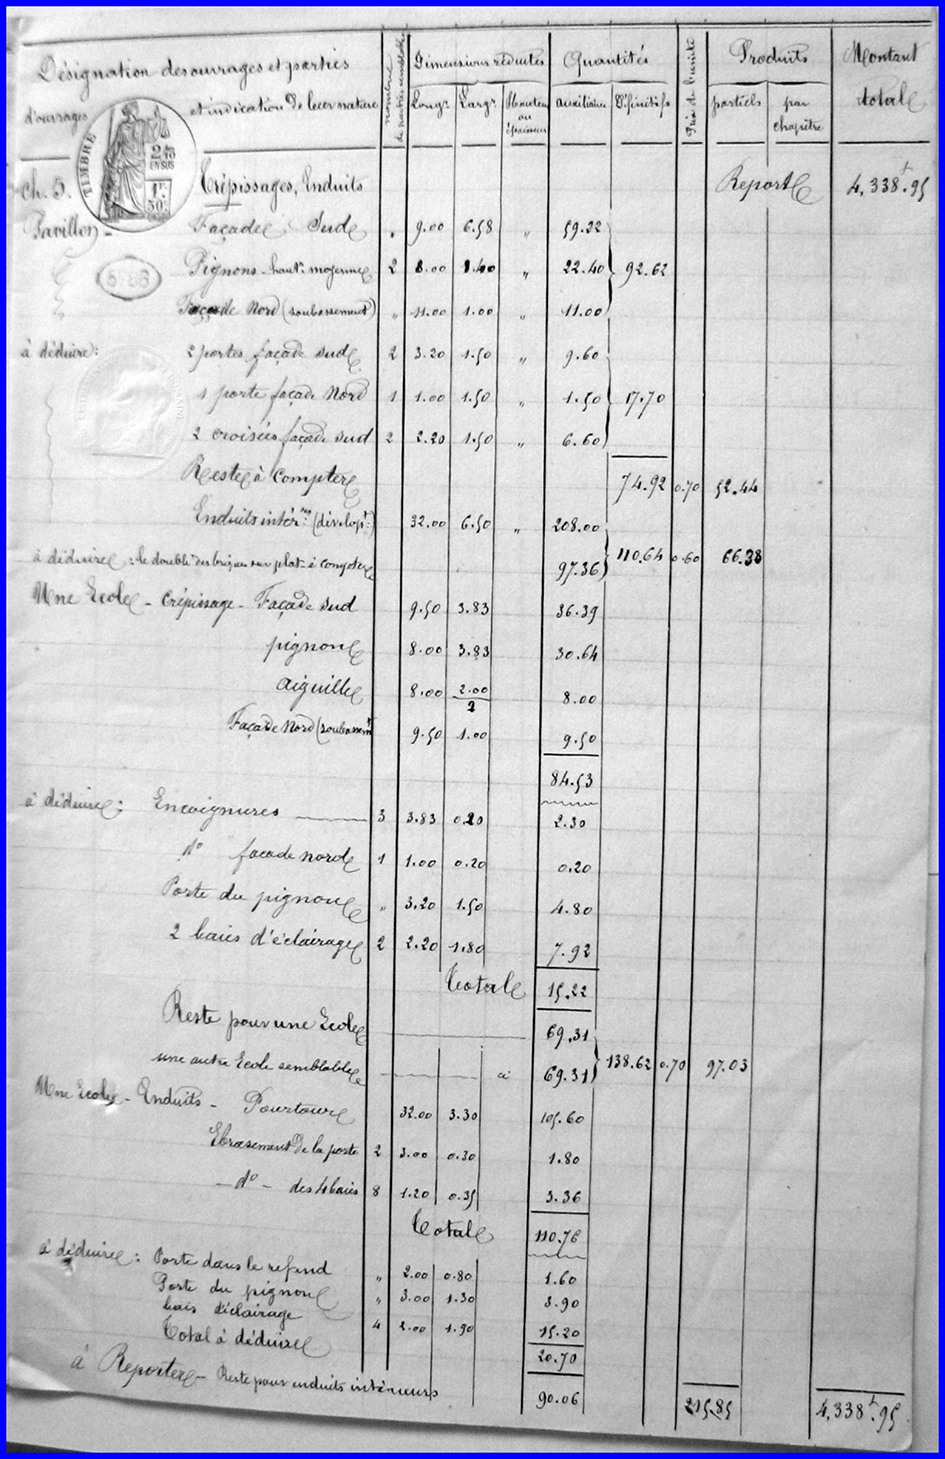 Désignation des ouvrages et parties d'ouvrages et indication de leur nature | nombre de parties semblables | Dimensions réduites | Quantités | Prix de l'unité | Produits | Montant total
Long.r Larg.r Hauteur ou épaisseur | auxiliaires Définitifs | partiels par chapitre
TIMBRE 2/10 EN SUS 1F 50c
ch. 5. Crépissages, Enduits Report 4,338f.95
Pavillon - Façade Sud " 9.00 6.58 " 59.22
5-86
Pignons - haut.r moyenne 2 8.00 1.40 " 22.40 92.62
Façade Nord (soubassement) " 11.00 1.00 " 11.00
à déduire: 2 portes façade sud 2 3.20 1.50 " 9.60
1 porte façade Nord 1 1.00 1.50 " 1.50 17.70
2 croisées façade sud 2 2.20 1.50 " 6.60
Reste à compter 74.92 0.70 52.44
Enduits intér.rs (dévelop.t) 32.00 6.50 " 208.00
à déduire : le double des briques sur plat à compter 97.36 110.64 0.60 66.38
Mne Ecole - Crépissage - Façade sud 9.50 3.83 36.39
pignon 8.00 3.83 30.64
aiguille 8.00 2.00/2 8.00
Façade Nord (soubassem.t) 9.50 1.00 9.50
84.53
à déduire : Encoignures 3 3.83 0.20 2.30
d° façade nord 1 1.00 0.20 0.20
Porte du pignon " 3.20 1.50 4.80
2 baies d'éclairage 2 2.20 1.80 7.92
Total 15.22
Reste pour une Ecole 69.31
une autre Ecole semblable à 69.31 138.62 0.70 97.03
Mne Ecole - Enduits - Pourtour 32.00 3.30 105.60
Ebrasement de la porte 2 3.00 0.30 1.80
- d° - des 4 baies 8 1.20 0.35 3.36
Total 110.76
à déduire : Porte dans le refend " 2.00 0.80 1.60
Porte du pignon " 3.00 1.30 3.90
baies d'éclairage 4 2.00 1.90 15.20
Total à déduire 20.70
à Reporter - Reste pour enduits intérieurs 90.06 215.85 4,338f.95